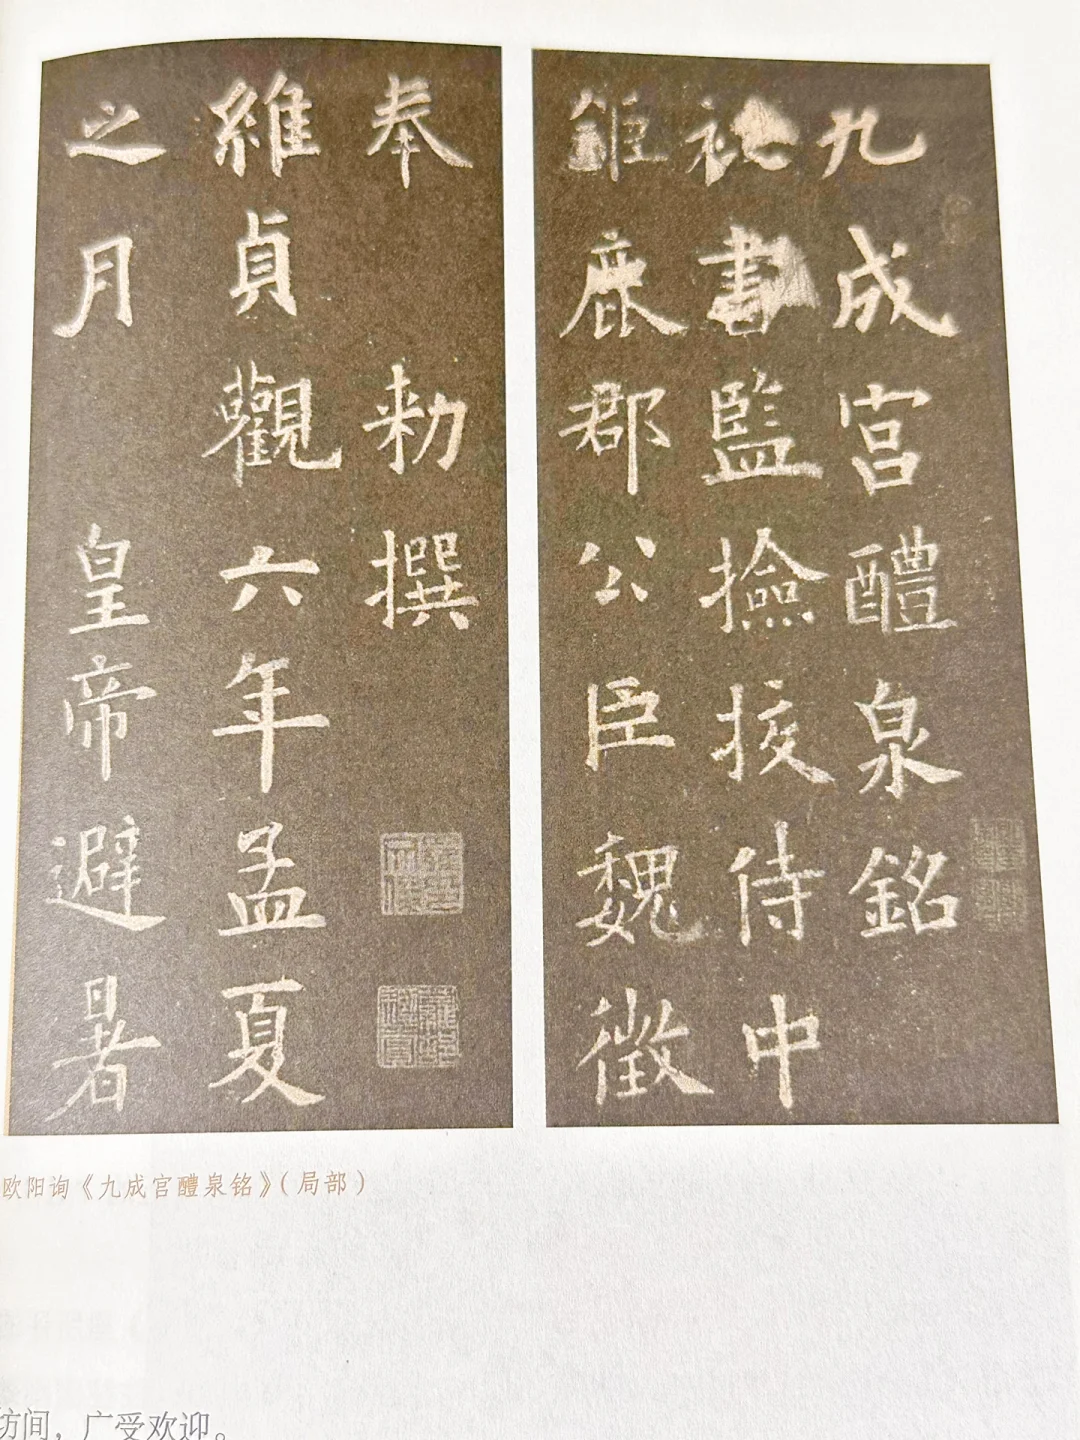 九成宫醴泉銘
秘書監撿挍侍中
鉅鹿郡公臣魏徵
奉 勅撰
維貞觀六年孟夏
之月 皇帝避暑
欧阳询《九成宫醴泉铭》（局部）
坊间，广受欢迎。